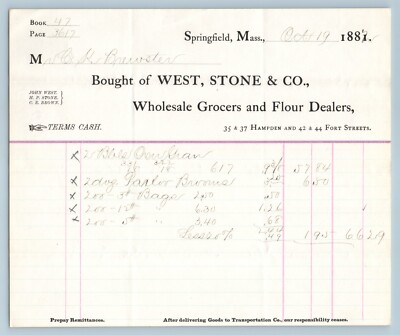 BOOK 47
PAGE 517
Springfield, Mass., Oct 19 188
M C L Brewster
Bought of WEST, STONE & CO.,
JOHN WEST.
H. P. STONE.
Wholesale Grocers and Flour Dealers,
TERMS CASH.
35 & 37 HAMPDEN AND 42 & 44 FORT STREETS.
x 2 Bbls Gran
617 57 84
x 2 doz Parlor Brooms 6 50
x 200 Bags 2.50 .50
x 200 630 1.26
x 200 340 .68
2.44
Less 20% .49 1.95 66 29
Prepay Remittances.
After delivering Goods to Transportation Co., our responsibility ceases.